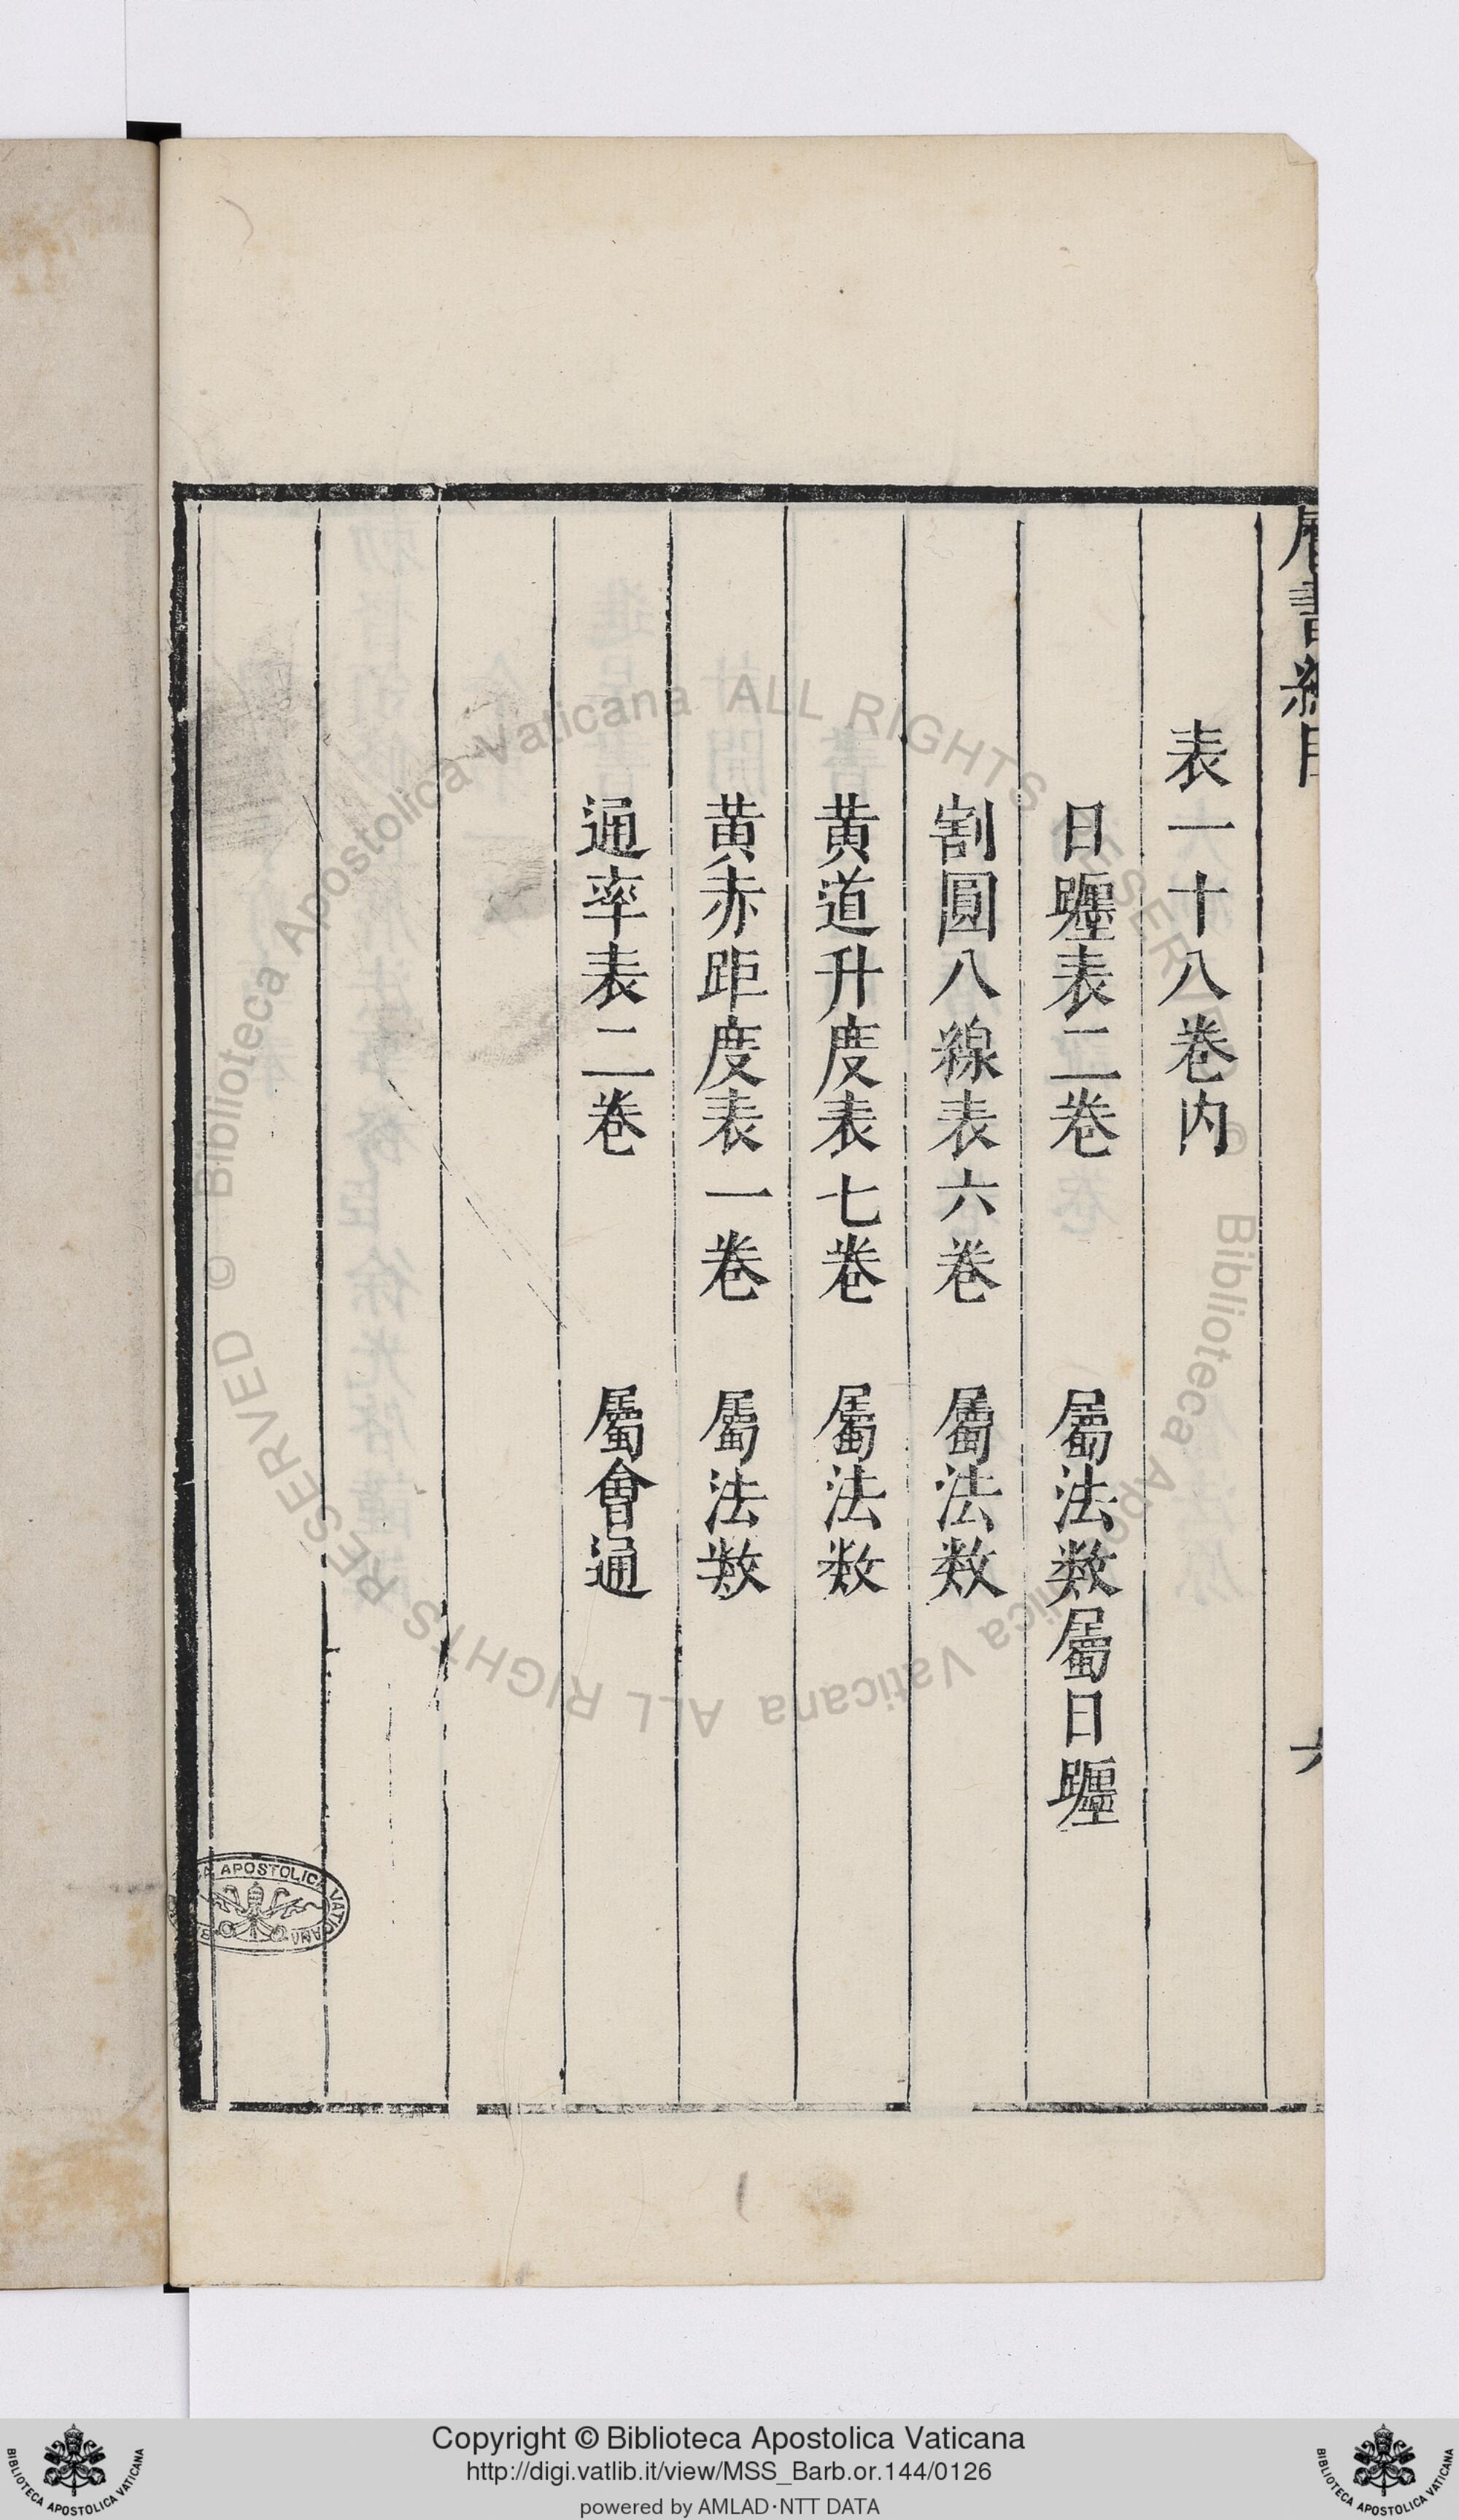 曆書總目
六
表一十八卷内
日躔表二卷 屬法数屬日躔
割圓八線表六卷 屬法数
黄道升度表七卷 屬法数
黄赤距度表一卷 屬法数
通率表二卷 屬會通
APOSTOLICA VATICANA
© Biblioteca Apostolica Vaticana ALL RIGHTS RESERVED
© Biblioteca Apostolica Vaticana ALL RIGHTS RESERVED
Copyright © Biblioteca Apostolica Vaticana
http://digi.vatlib.it/view/MSS_Barb.or.144/0126
powered by AMLAD·NTT DATA
BIBLIOTECA APOSTOLICA VATICANA
BIBLIOTECA APOSTOLICA VATICANA